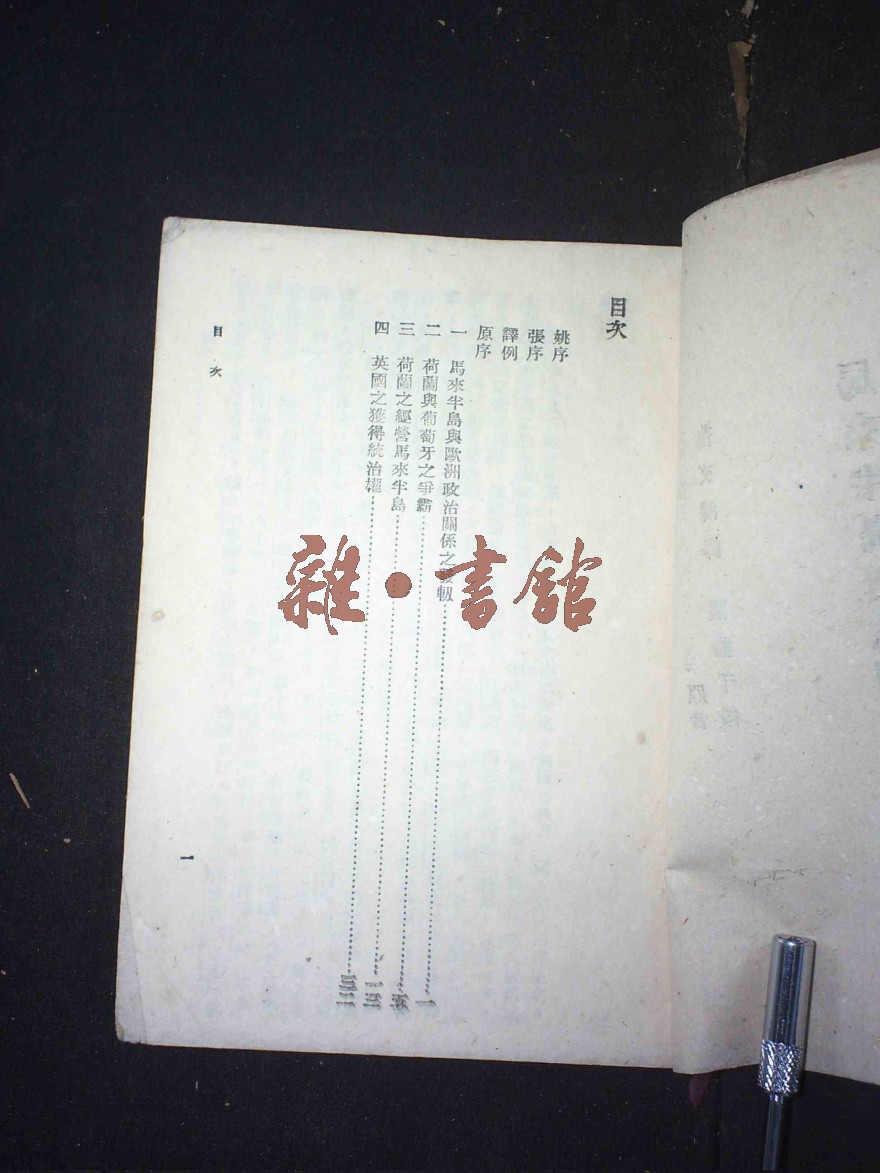 目次
姚序
張序
譯例
原序
一 馬來半島與歐洲政治關係之發軔……一
二 荷蘭與葡萄牙之爭霸……
三 荷蘭之經營馬來半島……一三
四 英國之獲得統治權……三二
目次
一
雜·書館